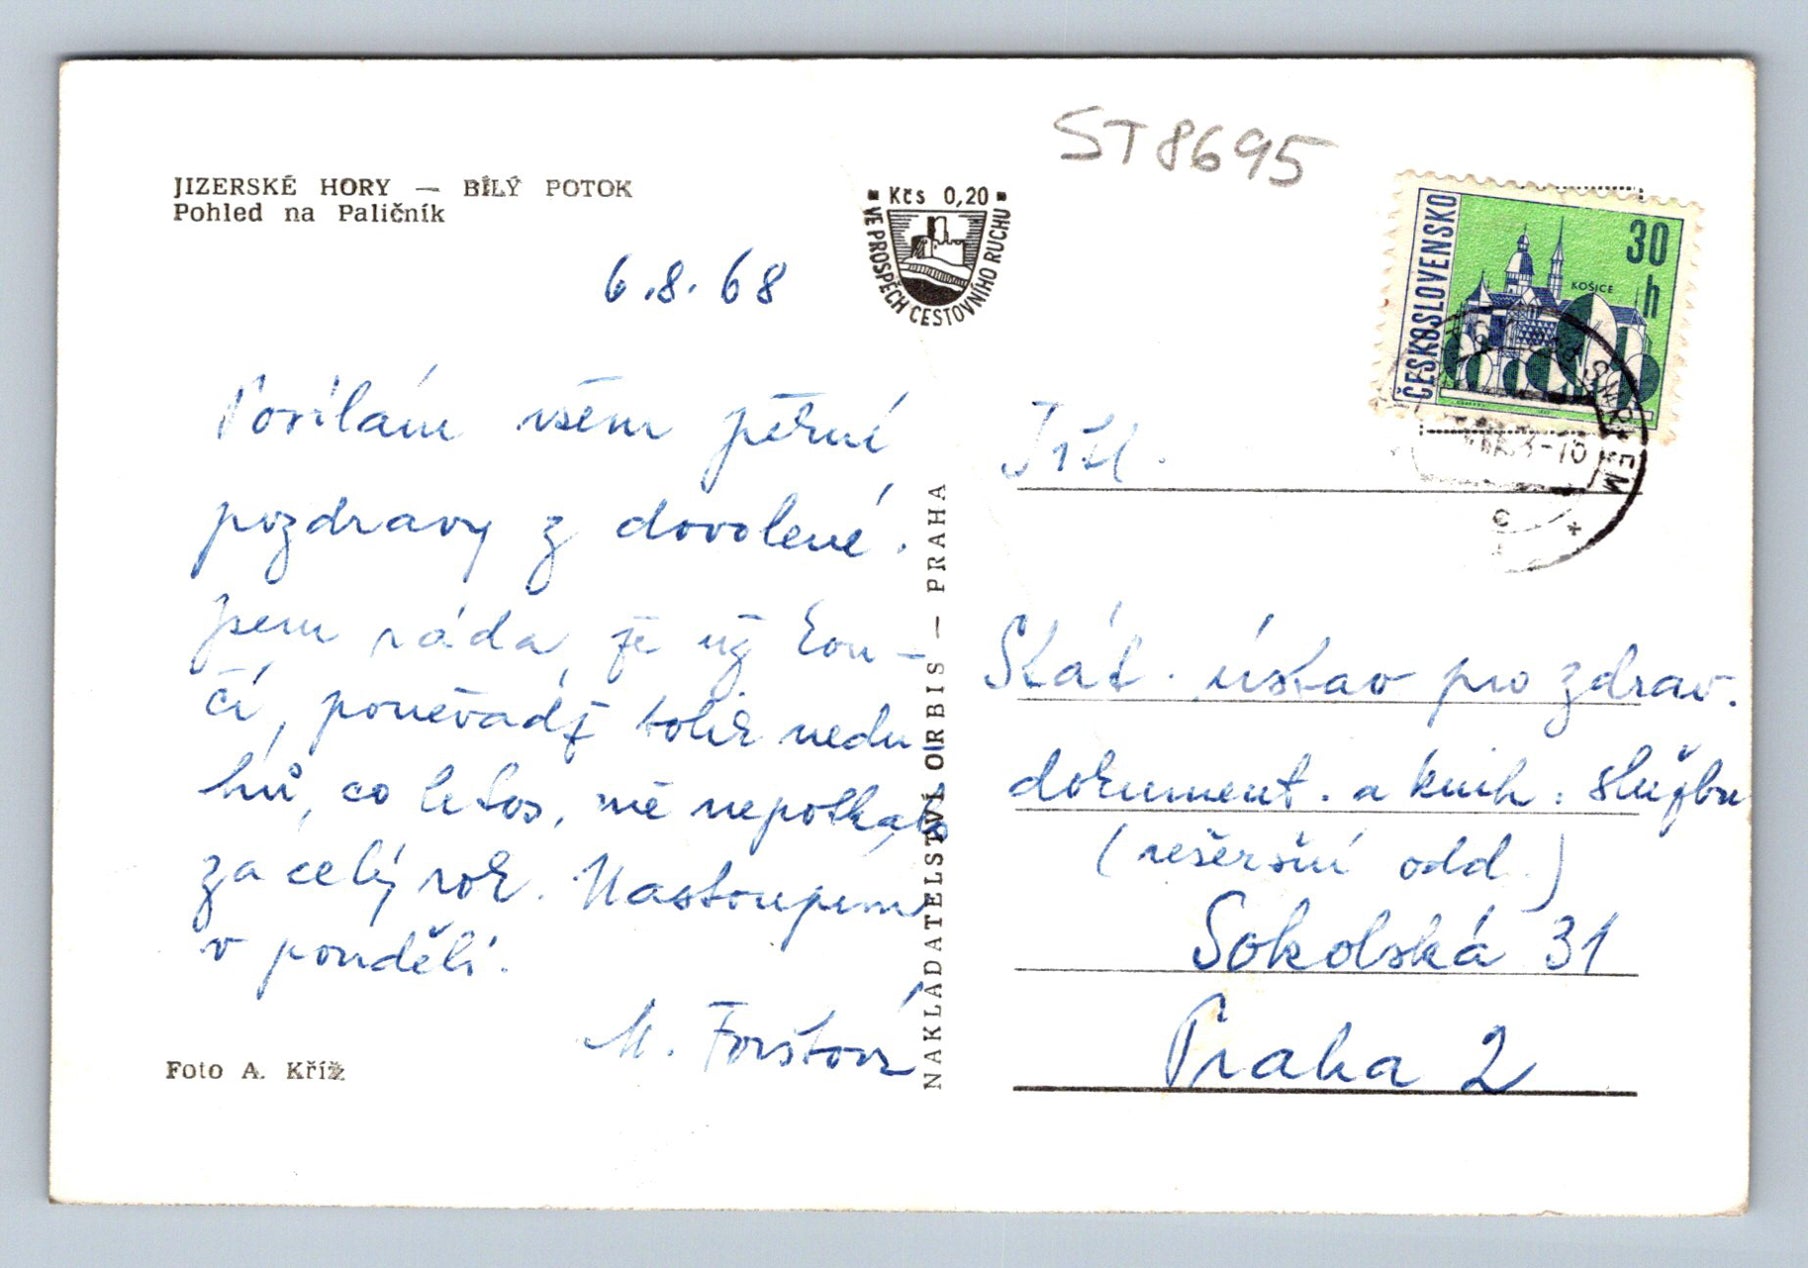 ST8695
JIZERSKÉ HORY — BÍLÝ POTOK
Pohled na Paličník
Kčs 0,20
VE PROSPĚCH CESTOVNÍHO RUCHU
ČESKOSLOVENSKO
30
h
KOŠICE
6.8.68
Posílám všem pěkné
pozdravy z dovolené.
Jsem ráda, že už kon-
čí, poněvadž tolik nedu-
hů, co letos, mě nepotkalo
za celý rok. Nastoupím
v pondělí.
M. Forštová
Foto A. Kříž
NAKLADATELSTVÍ ORBIS — PRAHA
Stát. ústav pro zdrav.
dokument. a knih. službu
(rešeršní odd.)
Sokolská 31
Praha 2